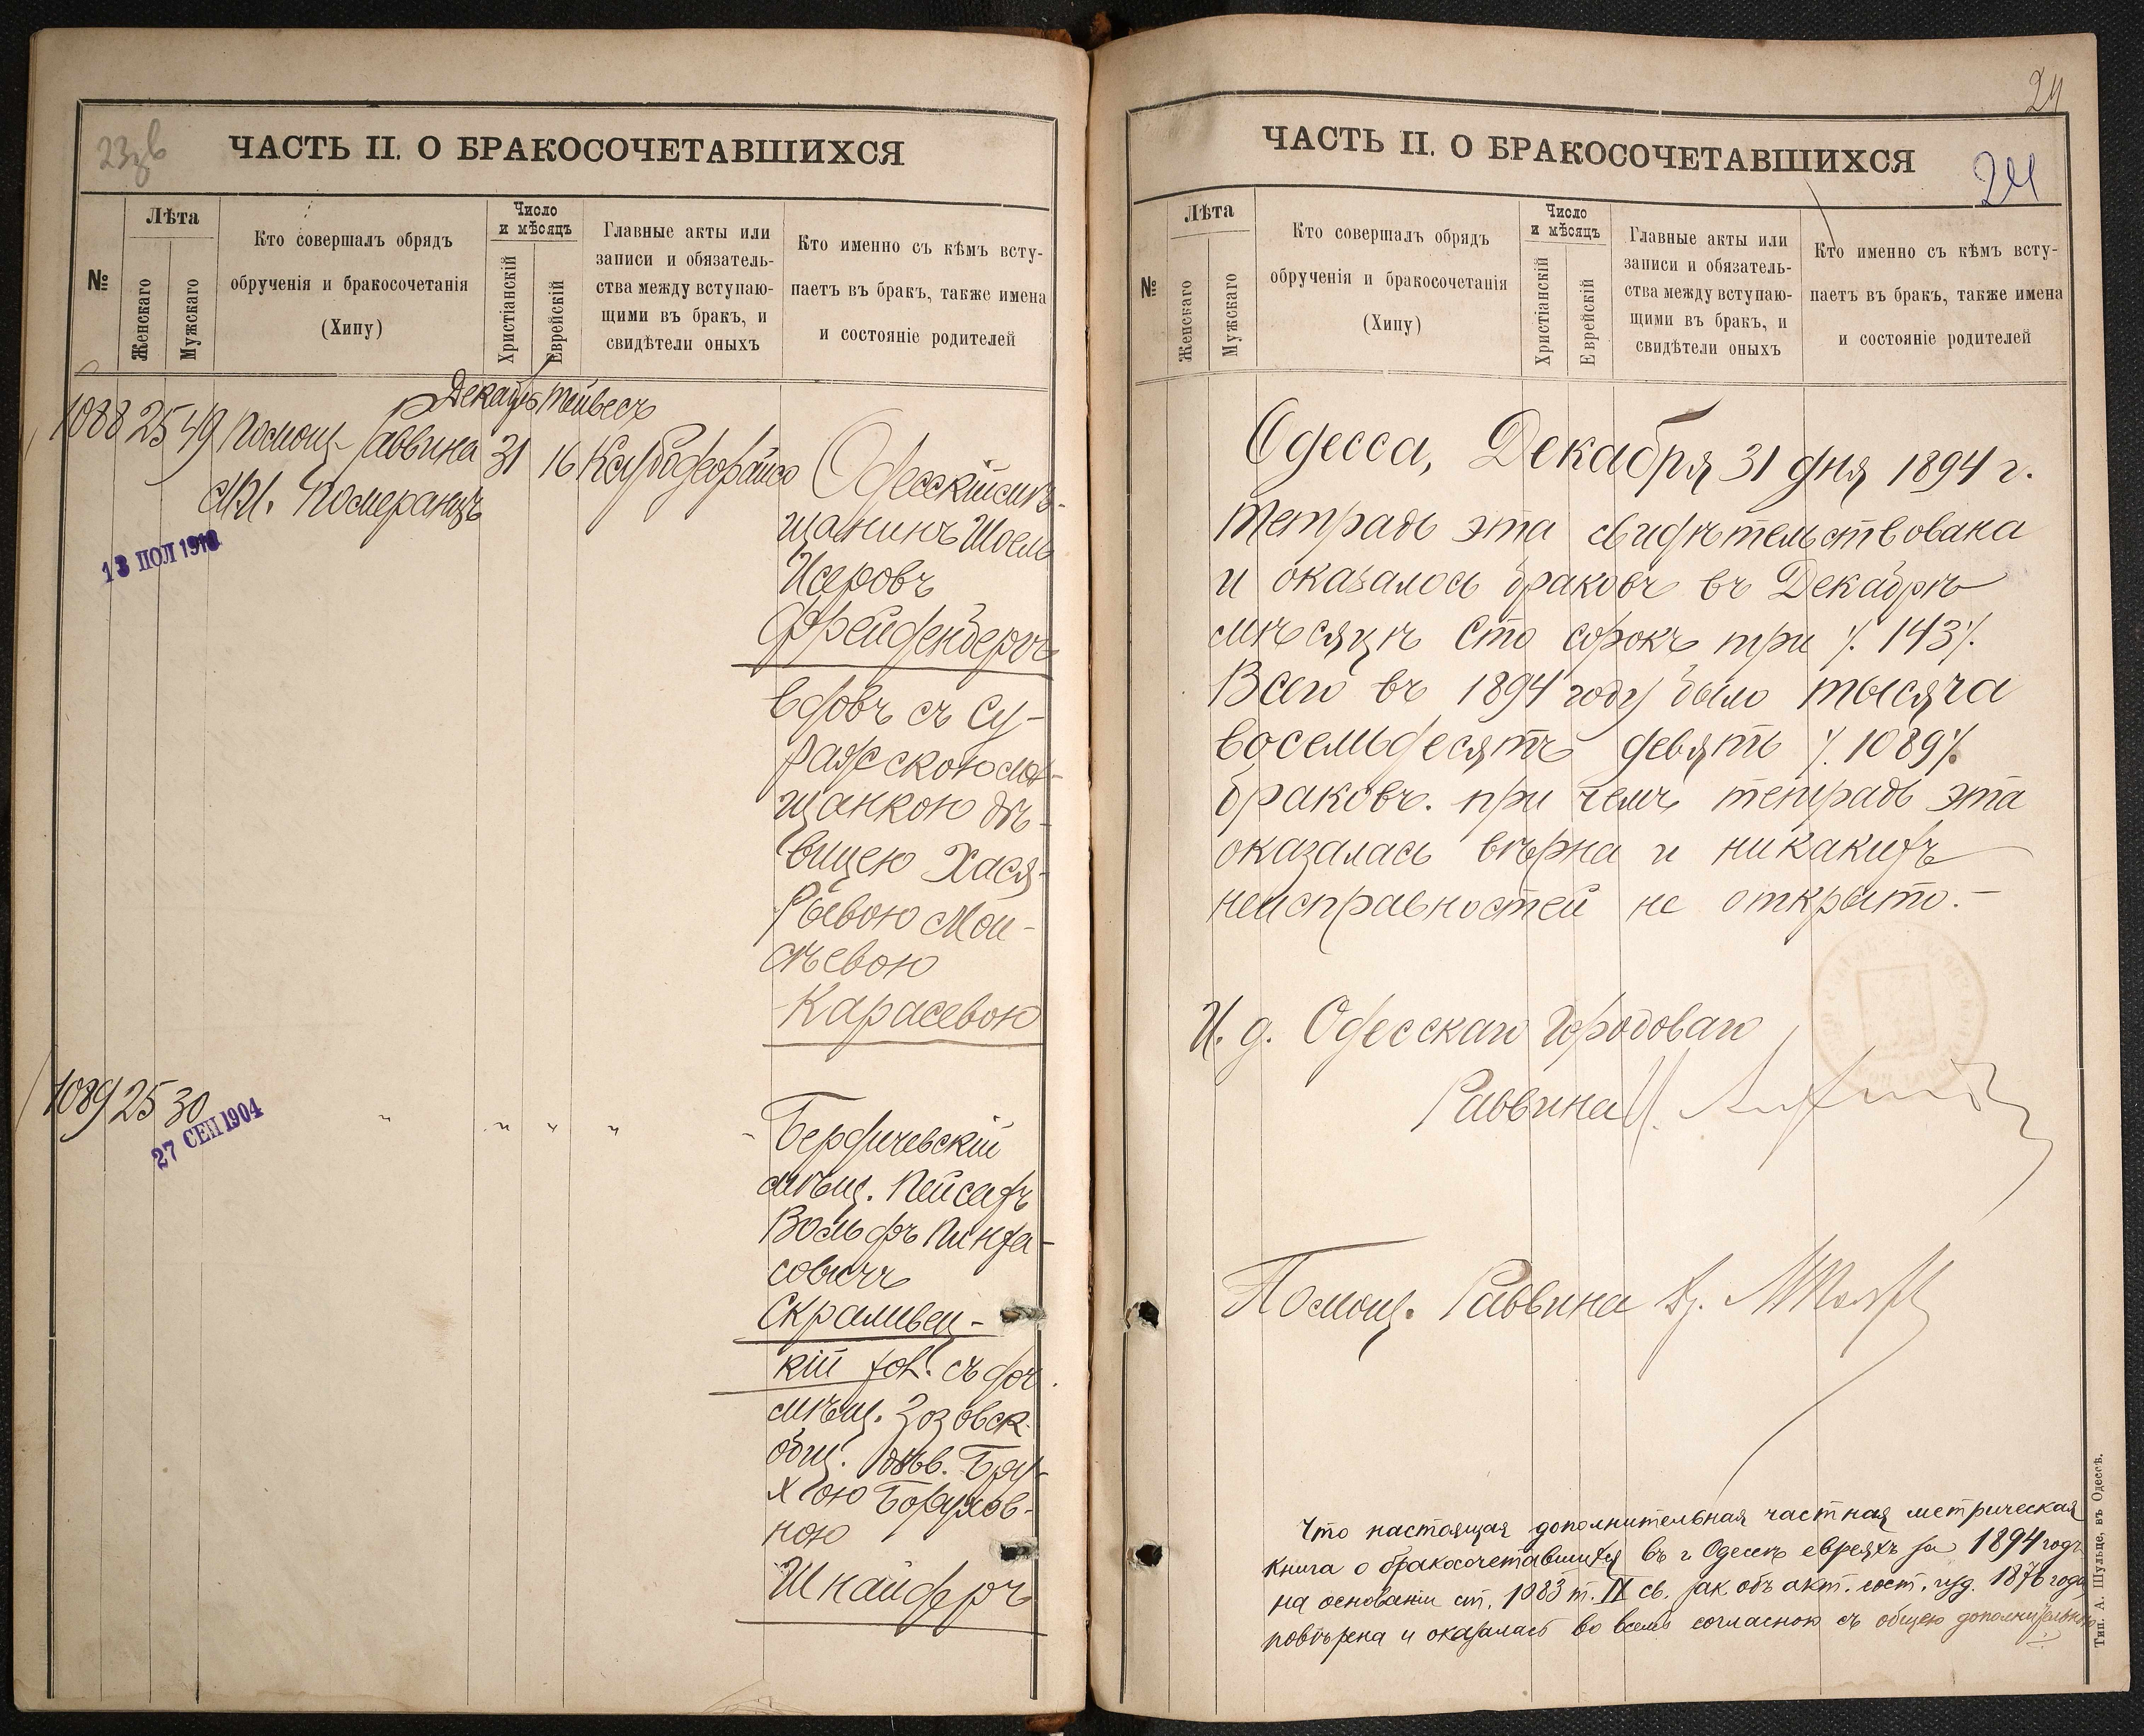 23зв
ЧАСТЬ II. О БРАКОСОЧЕТАВШИХСЯ
№
Лѣта
Женскаго
Мужскаго
Кто совершалъ обрядъ
обрученія и бракосочетанія
(Хипу)
Число
и мѣсяцъ
Христіанскій
Еврейскій
Главные акты или
записи и обязатель-
ства между вступаю-
щими въ бракъ, и
свидѣтели оныхъ
Кто именно съ кѣмъ всту-
паетъ въ бракъ, также имена
и состояніе родителей
Декабрь Тейвесъ
1088 25 49 Помощ. Раввина 31 16
М. Померанцъ
13 ІЮЛ 1910
Одесскій мѣ-
щанинъ Шоель
Исеровъ
Фрейденбергъ
вдовъ съ Су-
ражскою мѣ-
щанкою дѣ-
вицею Хася-
Рывою Мои-
сѣевою
Карасевою
1089 25 30 " " " "
27 СЕН 1904
Бердичевскій
мѣщ. Пейсахъ
Вольфъ Пинха-
совичъ
Скраливец-
кій хол. съ доч.
мѣщ. Зозовск.
общ. дѣв. Бру-
хою Борухов-
ною
Шнайдеръ
24
ЧАСТЬ II. О БРАКОСОЧЕТАВШИХСЯ
24
№
Лѣта
Женскаго
Мужскаго
Кто совершалъ обрядъ
обрученія и бракосочетанія
(Хипу)
Число
и мѣсяцъ
Христіанскій
Еврейскій
Главные акты или
записи и обязатель-
ства между вступаю-
щими въ бракъ, и
свидѣтели оныхъ
Кто именно съ кѣмъ всту-
паетъ въ бракъ, также имена
и состояніе родителей
Одесса, Декабря 31 дня 1894 г.
Тетрадь эта свидѣтельствована
и оказалось браковъ въ Декабрѣ
мѣсяцѣ сто сорокъ три ·/. 143 ·/.
Всего въ 1894 году было тысяча
восемьдесятъ девять ·/. 1089 ·/.
браковъ. при чемъ тетрадь эта
оказалась вѣрна и никакихъ
неисправностей не открыто. —
И. д. Одесскаго Городоваго
Раввина
Помощ. Раввина Др.
Что настоящая дополнительная частная метрическая
книга о бракосочетавшихся въ г. Одессѣ евреяхъ за 1894 годъ
на основаніи ст. 1083 т. IX св. зак. объ акт. сост. изд. 1876 года
повѣрена и оказалась во всемъ согласною съ общею дополнительною
Тип. А. Шульце, въ Одессѣ.